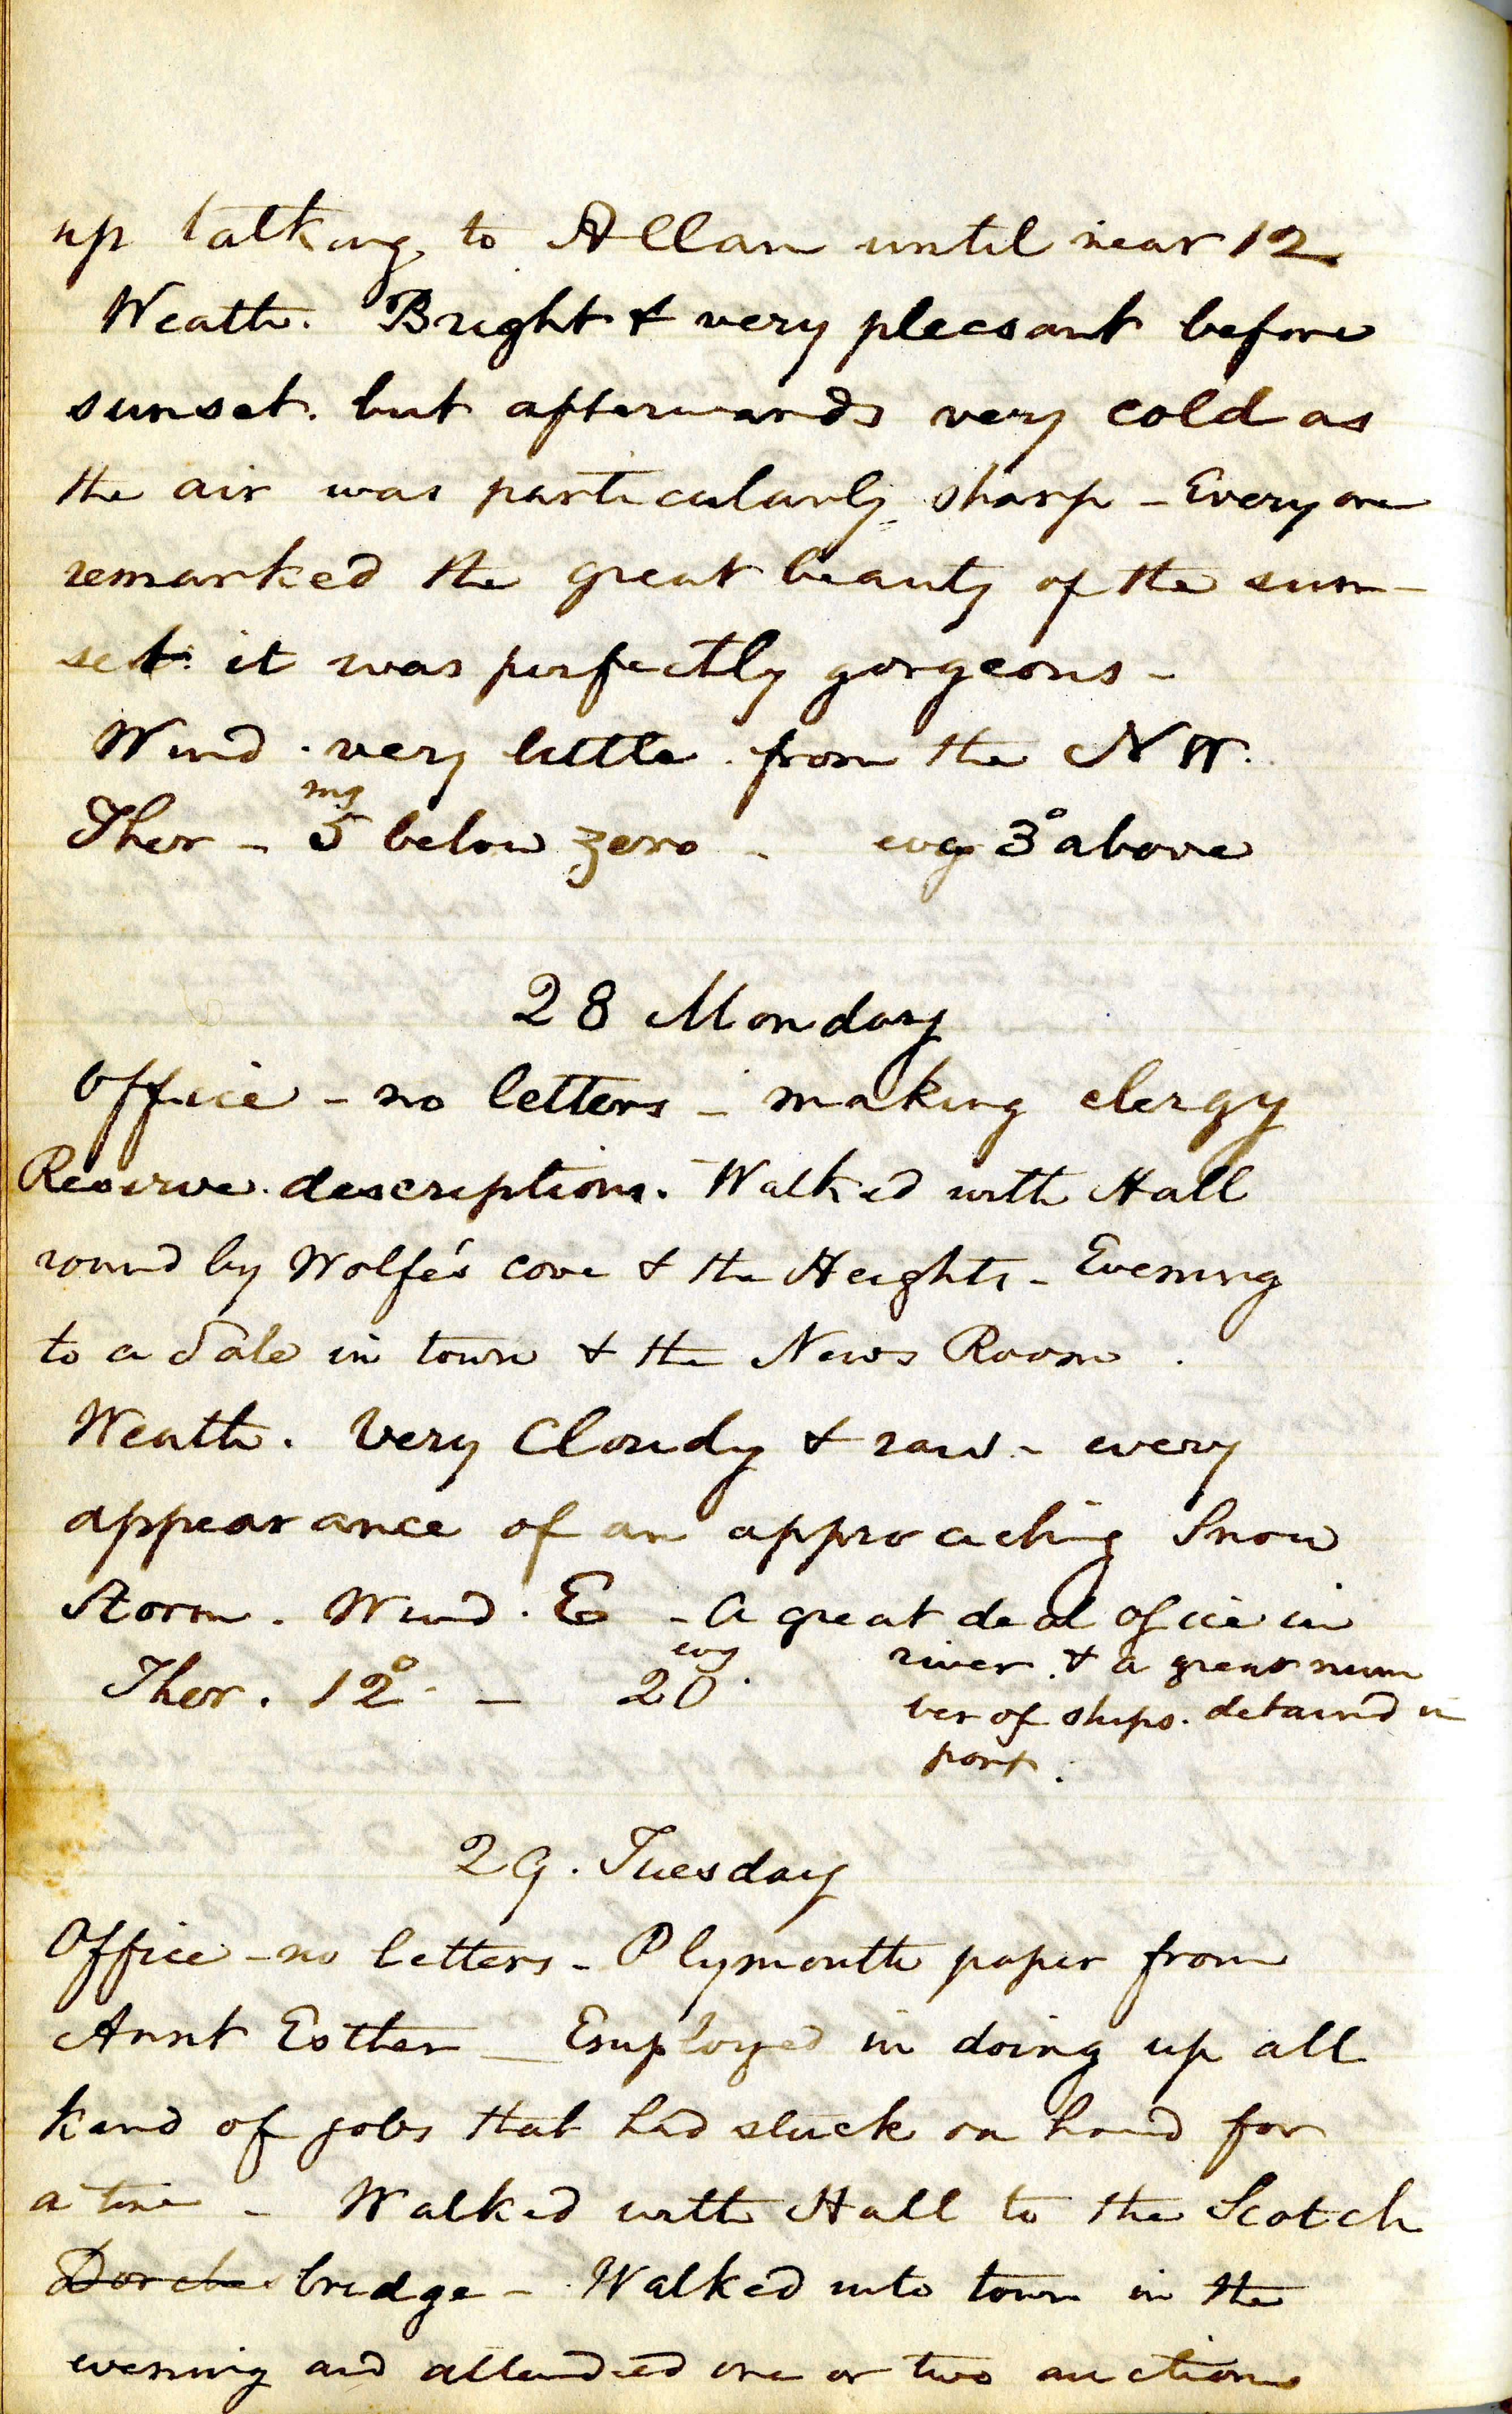 up talking to Allan until near 12
Weath. Bright & very pleasant before
sunset. but afterwards very cold as
the air was particularly sharp - Every one
remarked the great beauty of the sun-
set. it was perfectly gorgeous -
Wind . very little . from the N W.
mg
Ther - 5 below zero - evg 3° above
28 Monday
Office - no letters - making clergy
Reserve descriptions. - Walked with Hall
round by Wolfe's cove & the Heights - Evening
to a Sale in town & the News Room .
Weath. Very Cloudy & raw - every
appearance of an approaching Snow
Storm . Wind . E - A great deal of ice in
river . & a great num
ber of ships . detained in
port .
evg
Ther . 12° - 20 .
29. Tuesday
Office - no letters - Plymouth paper from
Aunt Esther - Employed in doing up all
kind of jobs that had stuck on hand for
a time - Walked with Hall to the Scotch
Dorches bridge - Walked into town in the
evening and attended one or two auctions